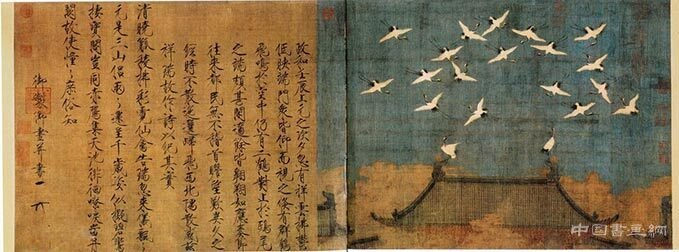 政和壬辰上元之次夕忽有祥雲拂鬱
低映端門眾皆仰而視之倏有群鶴
飛鳴於空中仍有二鶴對止於鴟尾
之端頗甚閑適餘皆翱翔如應奏節
往來都民無不稽首瞻望歎異久之
經時不散迤邐歸飛西北隅散感茲
祥瑞故作詩以紀其實
清曉觚稜拂彩霓仙禽告瑞忽來儀飄〻
元是三山侶兩〻還呈千歲姿似擬碧鸞
棲寶閣豈同赤雁集天池徘徊嘹唳當丹
闕故使憧〻庶俗知
御製御畫并書
中国書画網